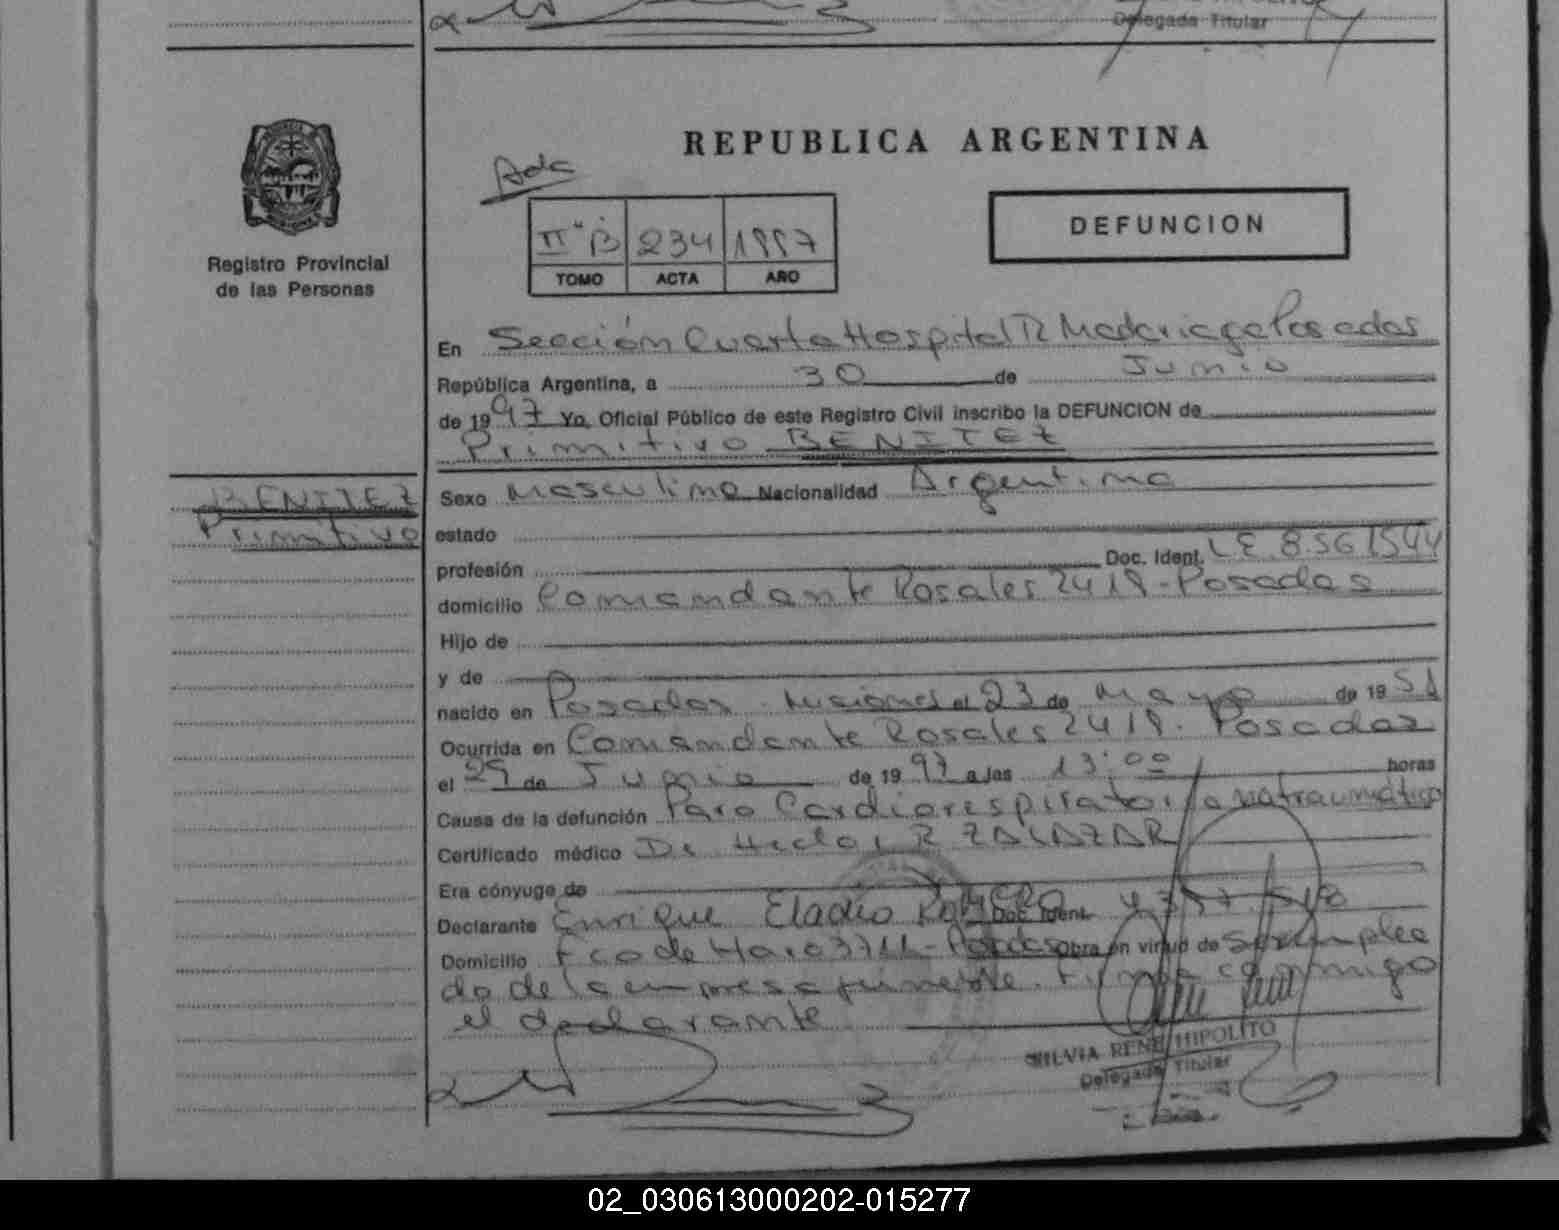 Delegada Titular
REPUBLICA ARGENTINA
Adc
II "B 234 1997
TOMO ACTA AÑO
DEFUNCION
Registro Provincial
de las Personas
En Sección Cuarta Hospital R Madariaga Posadas
República Argentina, a 30 de Junio
de 1997 Yo, Oficial Público de este Registro Civil inscribo la DEFUNCION de
Primitivo BENITEZ
BENITEZ
Primitivo
Sexo Masculino Nacionalidad Argentina
estado
profesión Doc. Ident. L.E. 8.561544
domicilio Comandante Rosales 2418 - Posadas
Hijo de
y de
nacido en Posadas - Misiones el 23 de Mayo de 1951
Ocurrida en Comandante Rosales 2418 - Posadas
el 29 de Junio de 1997 a las 13:00 horas
Causa de la defunción Paro Cardiorespiratorio natraumático
Certificado médico Dr Hector R ZALAZAR
Era cónyuge de
Declarante Enrique Eladio ROMERO Doc. Ident.
Domicilio Fco de Haro 3711 - Posadas obra en virtud de Ser emplea
do de la empresa funebre. Firma conmigo
el declarante
SILVIA RENE HIPOLITO
Delegada Titular
02_030613000202-015277